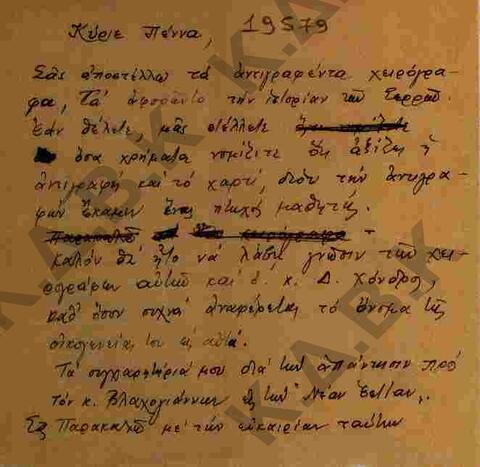 Κύριε Πέννα, 19579
Σᾶς ἀποστέλλω τά ἀντιγραφέντα χειρόγρα-
φα, τά ἀφορῶντα τήν ἱστορίαν τῶν Σερρῶν.
Ἐάν θέλετε, μᾶς στέλλετε
ὅσα χρήματα νομίζετε ὅτι ἀξίζει ἡ
ἀντιγραφή καί τό χαρτί, διότι τήν ἀντιγρα-
φήν ἔκαμεν ἕνας πτωχός μαθητής.
Παρακαλῶ χειρόγραφα
Καλόν θά ἦτο νά λάβῃ γνῶσιν τῶν χει-
ρογράφων αὐτῶν καί ὁ κ. Δ. Χόνδρος,
καθ' ὅσον συχνά ἀναφέρεται τό ὄνομα τῆς
οἰκογενείας του εἰς αὐτά.
Τά συγχαρητήριά μου διά τήν ἀπάντησιν πρό
τόν κ. Βλαχογιάννην εἰς τήν "Νέαν Ἑστίαν".
Σᾶς Παρακαλῶ μέ τήν εὐκαιρίαν ταύτην
Κ.Α.Β.Κ